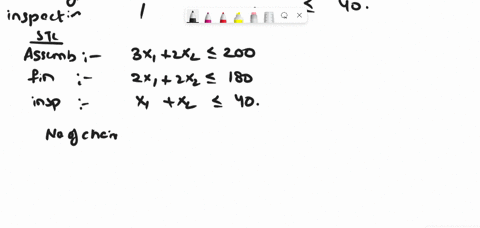 inspect :- 1 ≤ 40.
STC
Assemb :- 3x₁ + 2x₂ ≤ 200
fin :- 2x₁ + 2x₂ ≤ 180
insp :- x₁ + x₂ ≤ 40.
No of chair